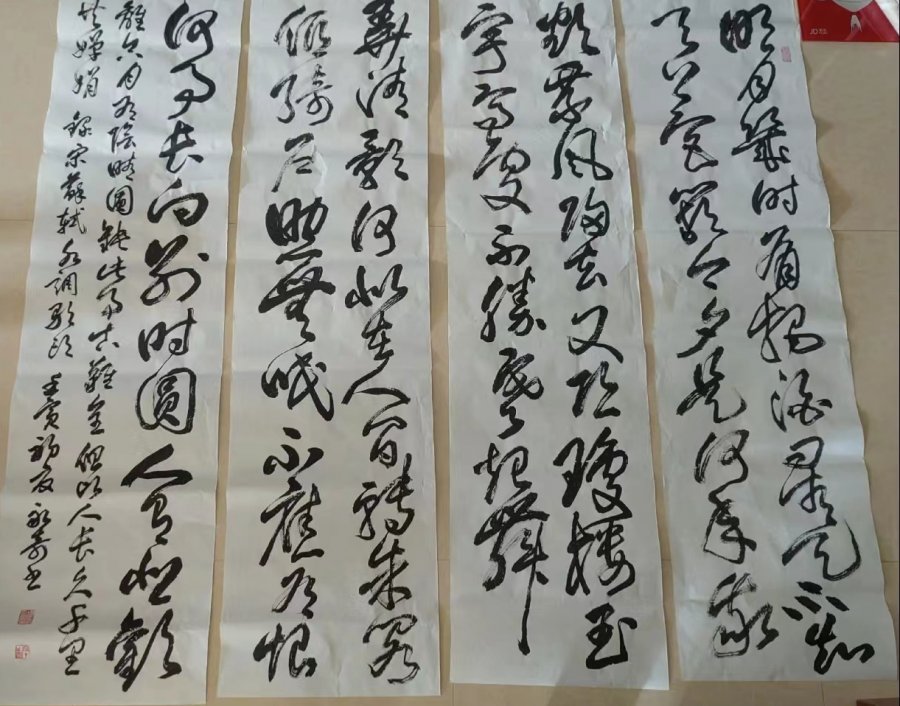 明月幾时有把酒问青天不知
天上宫阙今夕是何年我
欲乘风归去又恐瓊楼玉
宇高处不勝寒起舞
弄清影何似在人间转朱阁
低绮户照無眠不應有恨
何事长向别时圓人有悲歡
離合月有陰晴圓缺此事古難全但願人长久千里
共嬋娟 錄宋蘇軾水调歌头 壬寅初夏 书